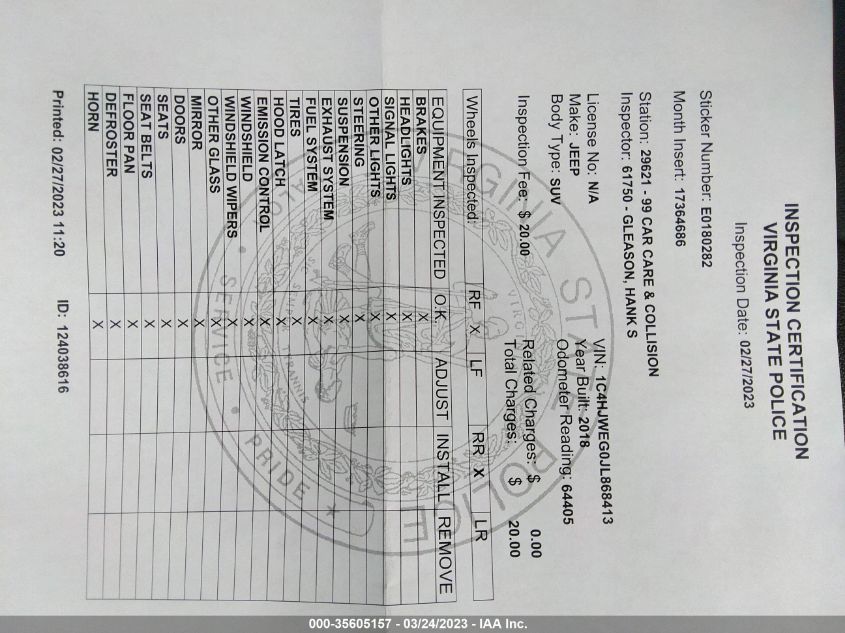 INSPECTION CERTIFICATION
VIRGINIA STATE POLICE
Inspection Date: 02/27/2023
Sticker Number: E0180282
Month Insert: 17364686
Station: 29621 - 99 CAR CARE & COLLISION
Inspector: 61750 - GLEASON, HANK S
License No: N/A VIN: 1C4HJWEG0JL868413
Make: JEEP Year Built: 2018
Body Type: SUV Odometer Reading: 64405
Inspection Fee: $ 20.00 Related Charges: $ 0.00
Total Charges: $ 20.00
Wheels Inspected: RF X LF RR X LR
EQUIPMENT INSPECTED O.K. ADJUST INSTALL REMOVE
BRAKES X
HEADLIGHTS X
SIGNAL LIGHTS X
OTHER LIGHTS X
STEERING X
SUSPENSION X
EXHAUST SYSTEM X
FUEL SYSTEM X
TIRES X
HOOD LATCH X
EMISSION CONTROL X
WINDSHIELD X
WINDSHIELD WIPERS X
OTHER GLASS X
MIRROR X
DOORS X
SEATS X
SEAT BELTS X
FLOOR PAN X
DEFROSTER X
HORN X
Printed: 02/27/2023 11:20 ID: 124038616
VIRGINIA STATE POLICE
SERVICE • PRIDE
000-35605157 - 03/24/2023 - IAA Inc.